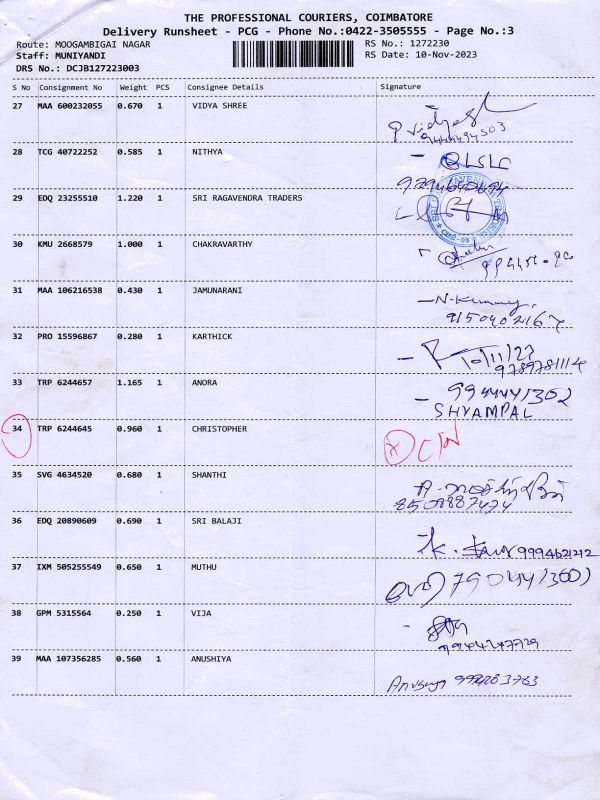 THE PROFESSIONAL COURIERS, COIMBATORE
Delivery Runsheet - PCG - Phone No.:0422-3505555 - Page No.:3
Route: MOOGAMBIGAI NAGAR RS No.: 1272230
Staff: MUNIYANDI RS Date: 10-Nov-2023
DRS No.: DCJB127223003
S No Consignment No Weight PCS Consignee Details Signature
27 MAA 600232055 0.670 1 VIDYA SHREE
28 TCG 40722252 0.585 1 NITHYA
29 EDQ 23255510 1.220 1 SRI RAGAVENDRA TRADERS
30 KMU 2668579 1.000 1 CHAKRAVARTHY
31 MAA 106216538 0.430 1 JAMUNARANI
9150402167
32 PRO 15596867 0.280 1 KARTHICK 10/11/23
9789781114
33 TRP 6244657 1.165 1 ANORA 9944441302
SHYAMPAL
34 TRP 6244645 0.960 1 CHRISTOPHER
35 SVG 4634520 0.680 1 SHANTHI
8508887474
36 EDQ 20890609 0.690 1 SRI BALAJI
9994621212
37 IXM 505255549 0.650 1 MUTHU
38 GPM 5315564 0.250 1 VIJA
39 MAA 107356285 0.560 1 ANUSHIYA